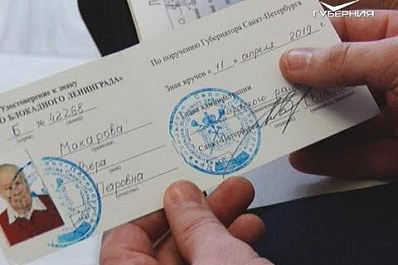 ГУБЕРНИЯ
Удостоверение к знаку
БЛОКАДНОГО ЛЕНИНГРАДА»
Б № 48268
(серия) (номер)
Макарова
(фамилия)
Вера
(имя)
Петровна
(отчество)
По поручению Губернатора Санкт-Петербурга
Знак вручен «11» апреля 2019 г.
Глава администрации
района
Санкт-Петербурга
(подпись)